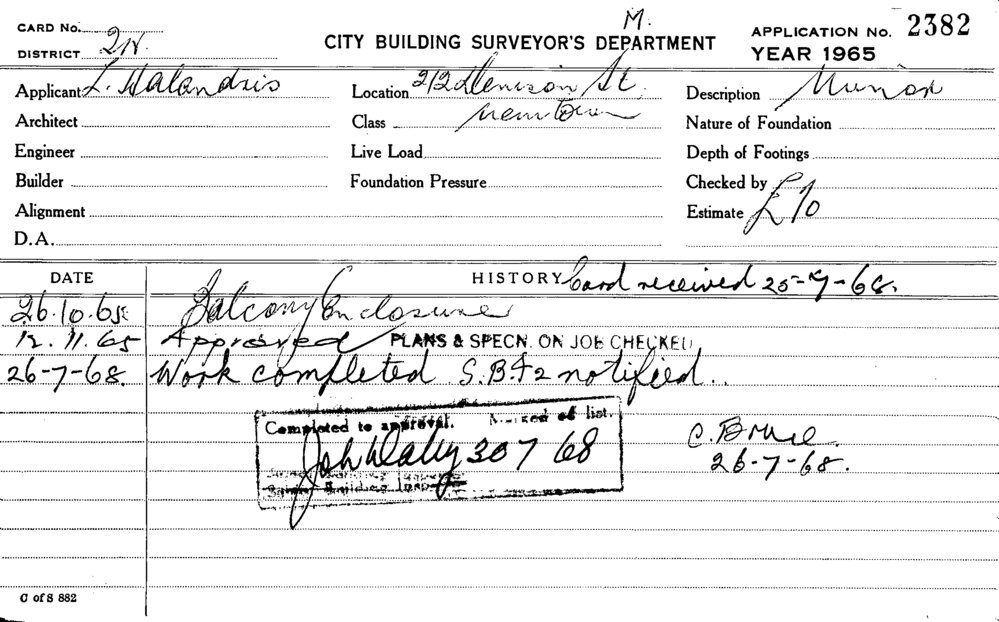 M.
CARD No.
DISTRICT 2N.
CITY BUILDING SURVEYOR'S DEPARTMENT
APPLICATION No. 2382
YEAR 1965
Applicant L. Halandris
Location 212 Denison St.
Description Minor
Architect
Class Newtown
Nature of Foundation
Engineer
Live Load
Depth of Footings
Builder
Foundation Pressure
Checked by
Alignment
Estimate £70
D.A.
DATE
HISTORY Card received 25-7-68.
26.10.65 Balcony Enclosure
12.11.65 Approved PLANS & SPECN. ON JOB CHECKED
26-7-68. Work completed S.B.I2 notified.
Completed to approval. of list.
John Daley 30 7 68
Building Insp
C. Bruce.
26-7-68.
C of S 882